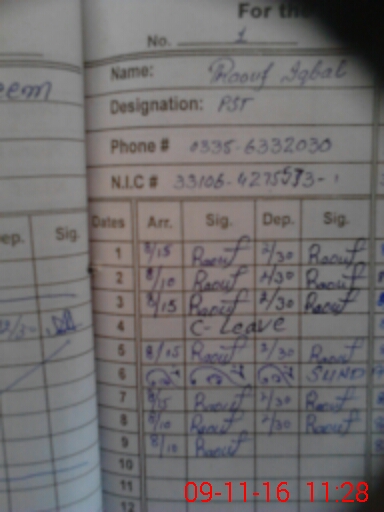 For the
No. 1
Name: Raouf Iqbal
Designation: PST
Phone # 0335-6332030
N.I.C # 33106-4275573-1
Dates Arr. Sig. Dep. Sig.
1 8/15 Raouf 2/30 Raouf
2 8/10 Raouf 2/30 Raouf
3 8/15 Raouf 2/30 Raouf
4 C-Leave
5 8/15 Raouf 2/30 Raouf
6
7 8/15 Raouf 2/30 Raouf
8 8/10 Raouf 2/30 Raouf
9 8/10 Raouf
10
11
12
eem
ep. Sig.
09-11-16 11:28